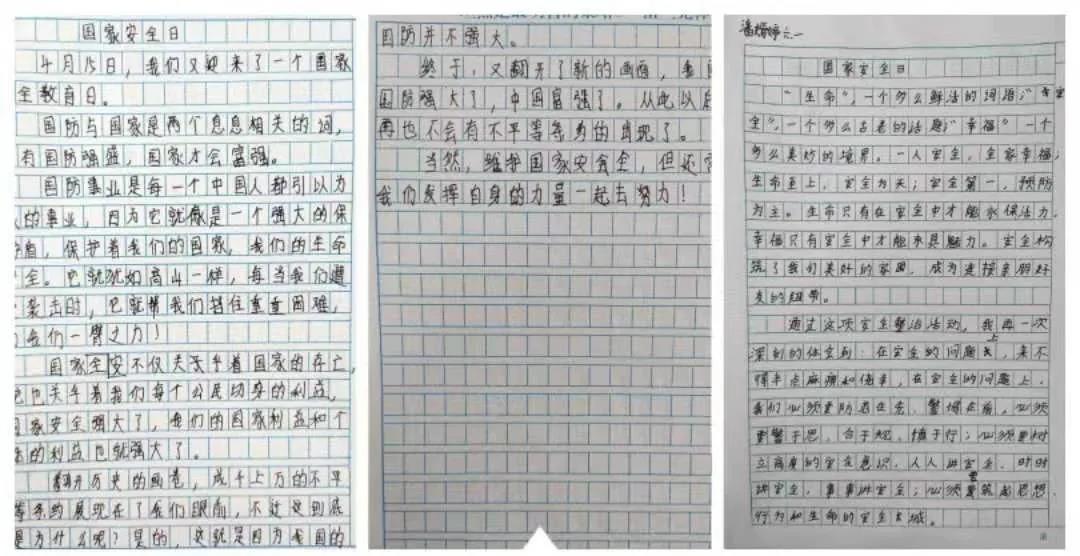 国家安全日
4月15日，我们又迎来了一个国家
全教育日。
国防与国家是两个息息相关的词，
有国防强盛，国家才会富强。
国防事业是每一个中国人都引以为
的事业，因为它就像是一个强大的保
着，保护着我们的国家，我们的生命
全。它就犹如高山一样，每当我们遭
袭击时，它就帮我们挡住重重困难，
我们一臂之力！
国家全安不仅关乎着国家的存亡，
也关乎着我们每个公民切身的利益，
家安全强大了，我们的国家利益和个
的利益也就强大了。
翻开历史的画卷，成千上万的不平
等条约展现在了我们眼前，不过这到底
是为什么呢？是的，这就是因为我国的
国防并不强大。
终于，又翻开了新的画面，
国防强大了，中国富强了。从此以后
再也不会有不平等条约的出现了。
当然，维护国家安全，但还
我们发挥自身的力量一起去努力！
六一
国家安全日
“生命”，一个多么鲜活的词语；“安
全”，一个多么古老的话题；“幸福”一个
多么美妙的境界。一人安全，全家幸福；
生命至上，安全为天；安全第一，预防
为主。生命只有在安全中才能永保活力，
幸福只有安全中才能永具魅力。安全构
筑了我们美好的家园，成为连接亲朋好
友的纽带。
通过这项安全整治活动，我再一次
深刻的体会到：在安全的问题上，来不
得半点麻痹和侥幸，在安全的问题上，
我们必须要防者在先、警惕在前，必须
警于思，合于规、慎于行；必须要树
立高度的安全意识，人人讲安全，时时
讲安全，事事讲安全；必须要筑起思想、
行为和生命的安全长城。